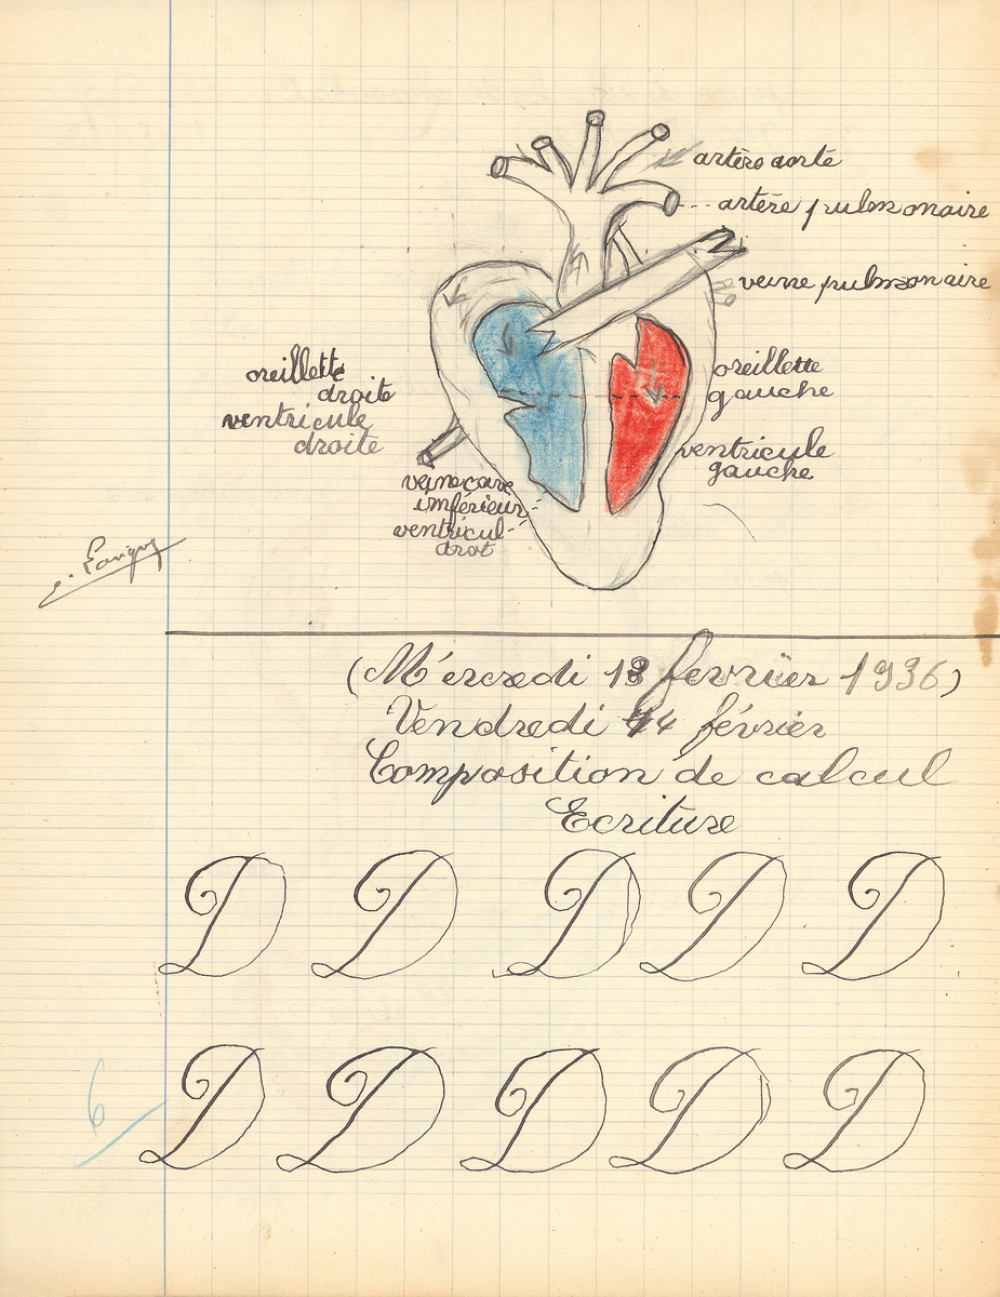 artère aorte
artère pulmonaire
veine pulmonaire
oreillette
droite
ventricule
droite
oreillette
gauche
ventricule
gauche
veine cave
inférieur
ventricul
drot
(Mercredi 13 fevrier 1936)
Vendredi 14 février
Composition de calcul
Ecriture
D D D D D
D D D D D
6